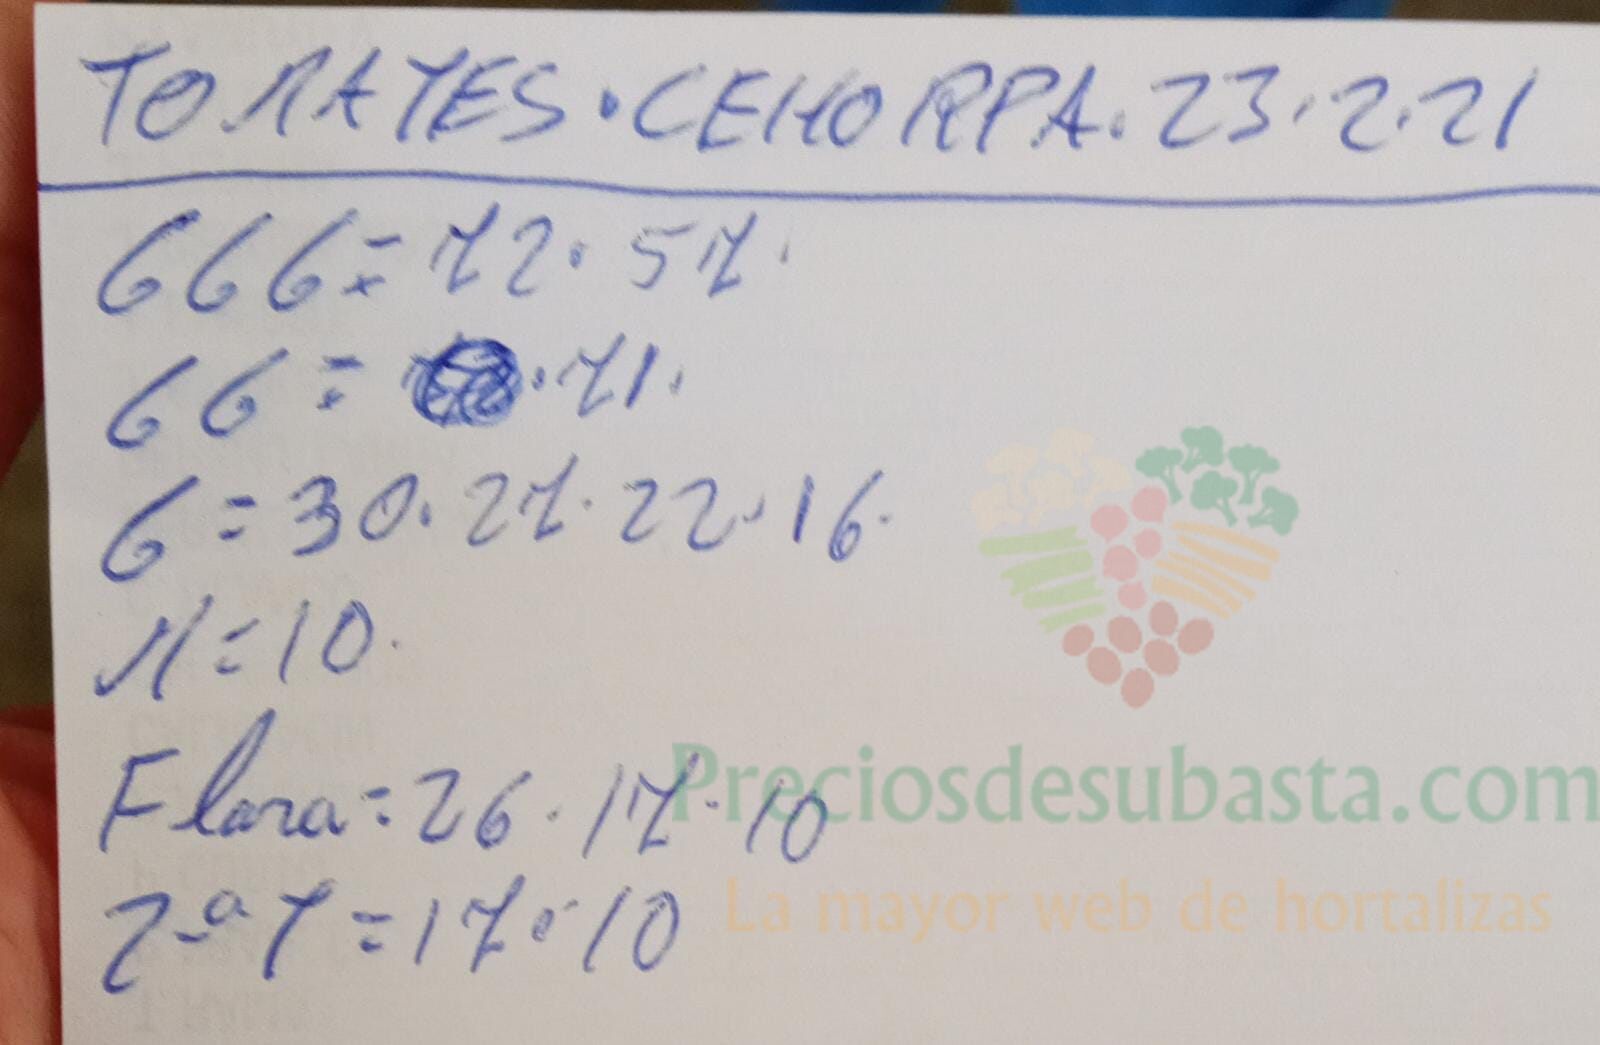 TOMATES · CEHORPA. 23.2.21
GGG = 72. 57.
GG = . 71.
G = 30. 27. 22. 16.
M = 10.
Flora = 26. 17. 10
2ª T = 17. 10
Preciosdesubasta.com
La mayor web de hortalizas